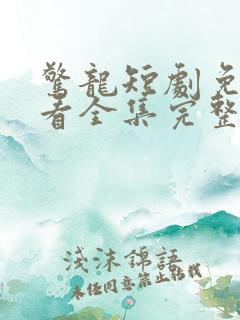 驚龍短劇免
看全集完整
淺沫錦語
未經同意禁止轉載